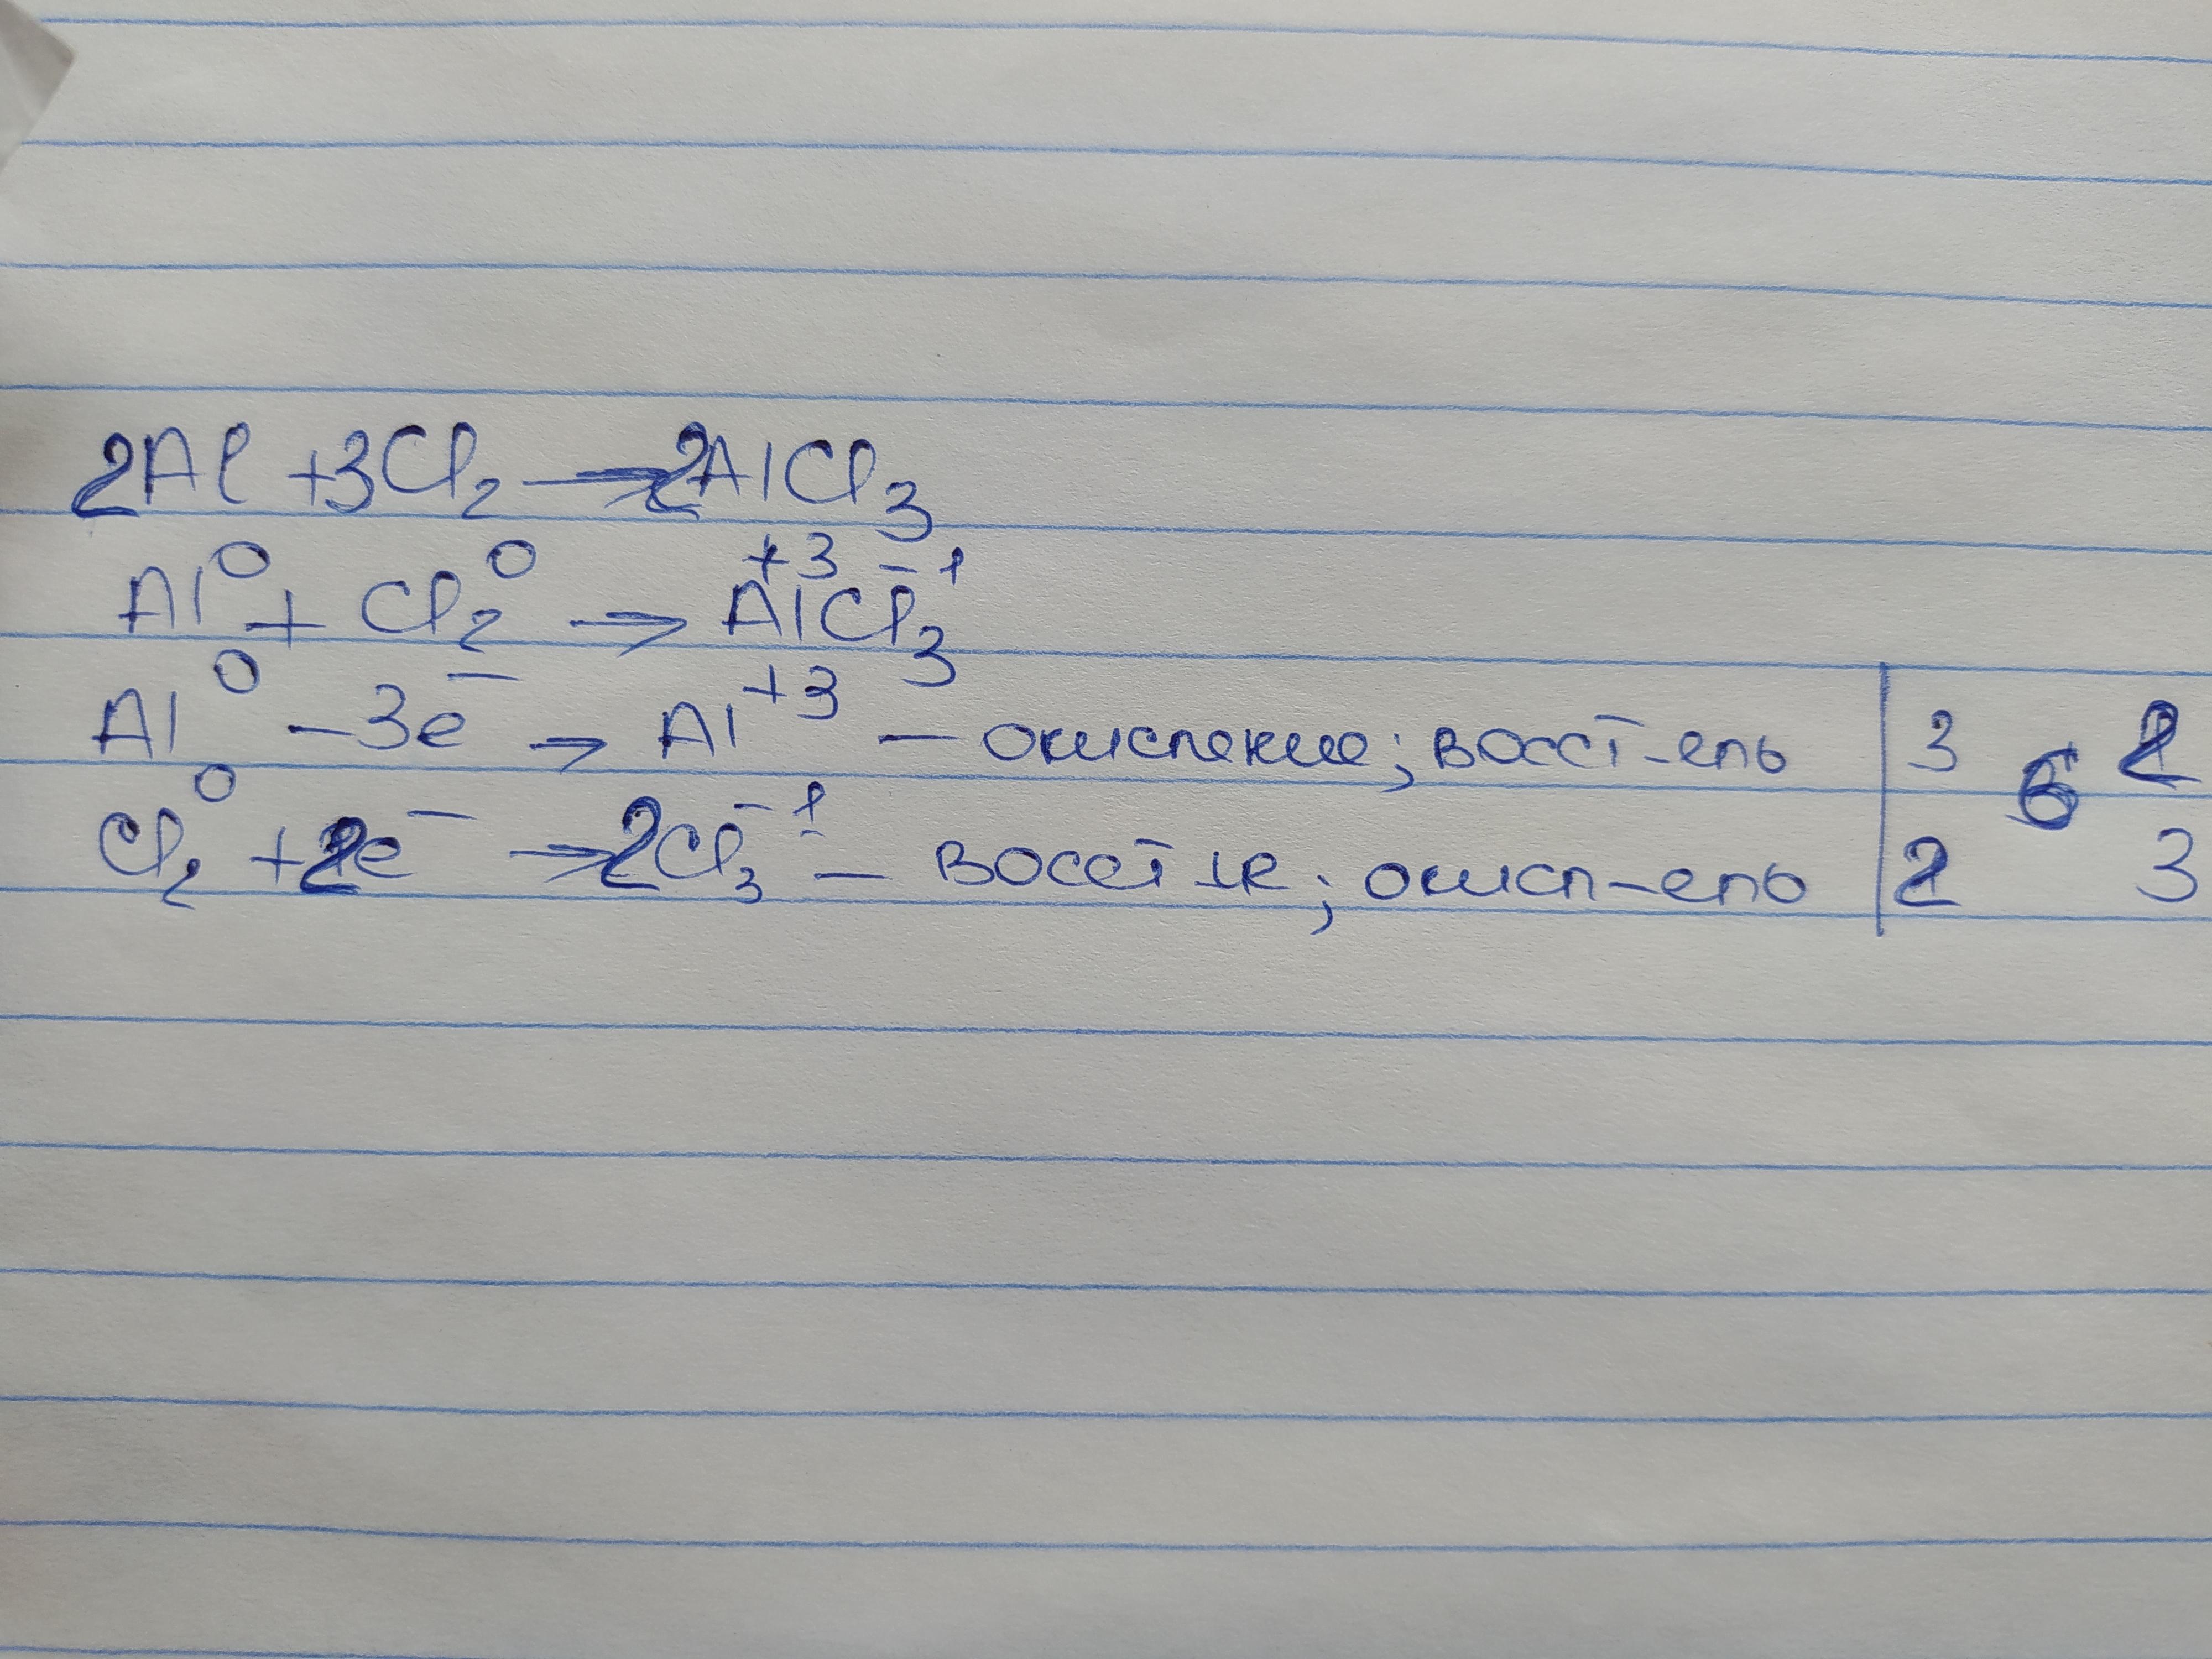 2Al + 3Cl₂ → 2AlCl₃
Al⁰ + Cl₂⁰ → Al⁺³Cl₃⁻¹
Al⁰ – 3e⁻ → Al⁺³ – окисление; восст-ель | 3 6 2
Cl₂⁰ + 2e⁻ → 2Cl₃⁻¹ – восст-ие; окисл-ель | 2 3